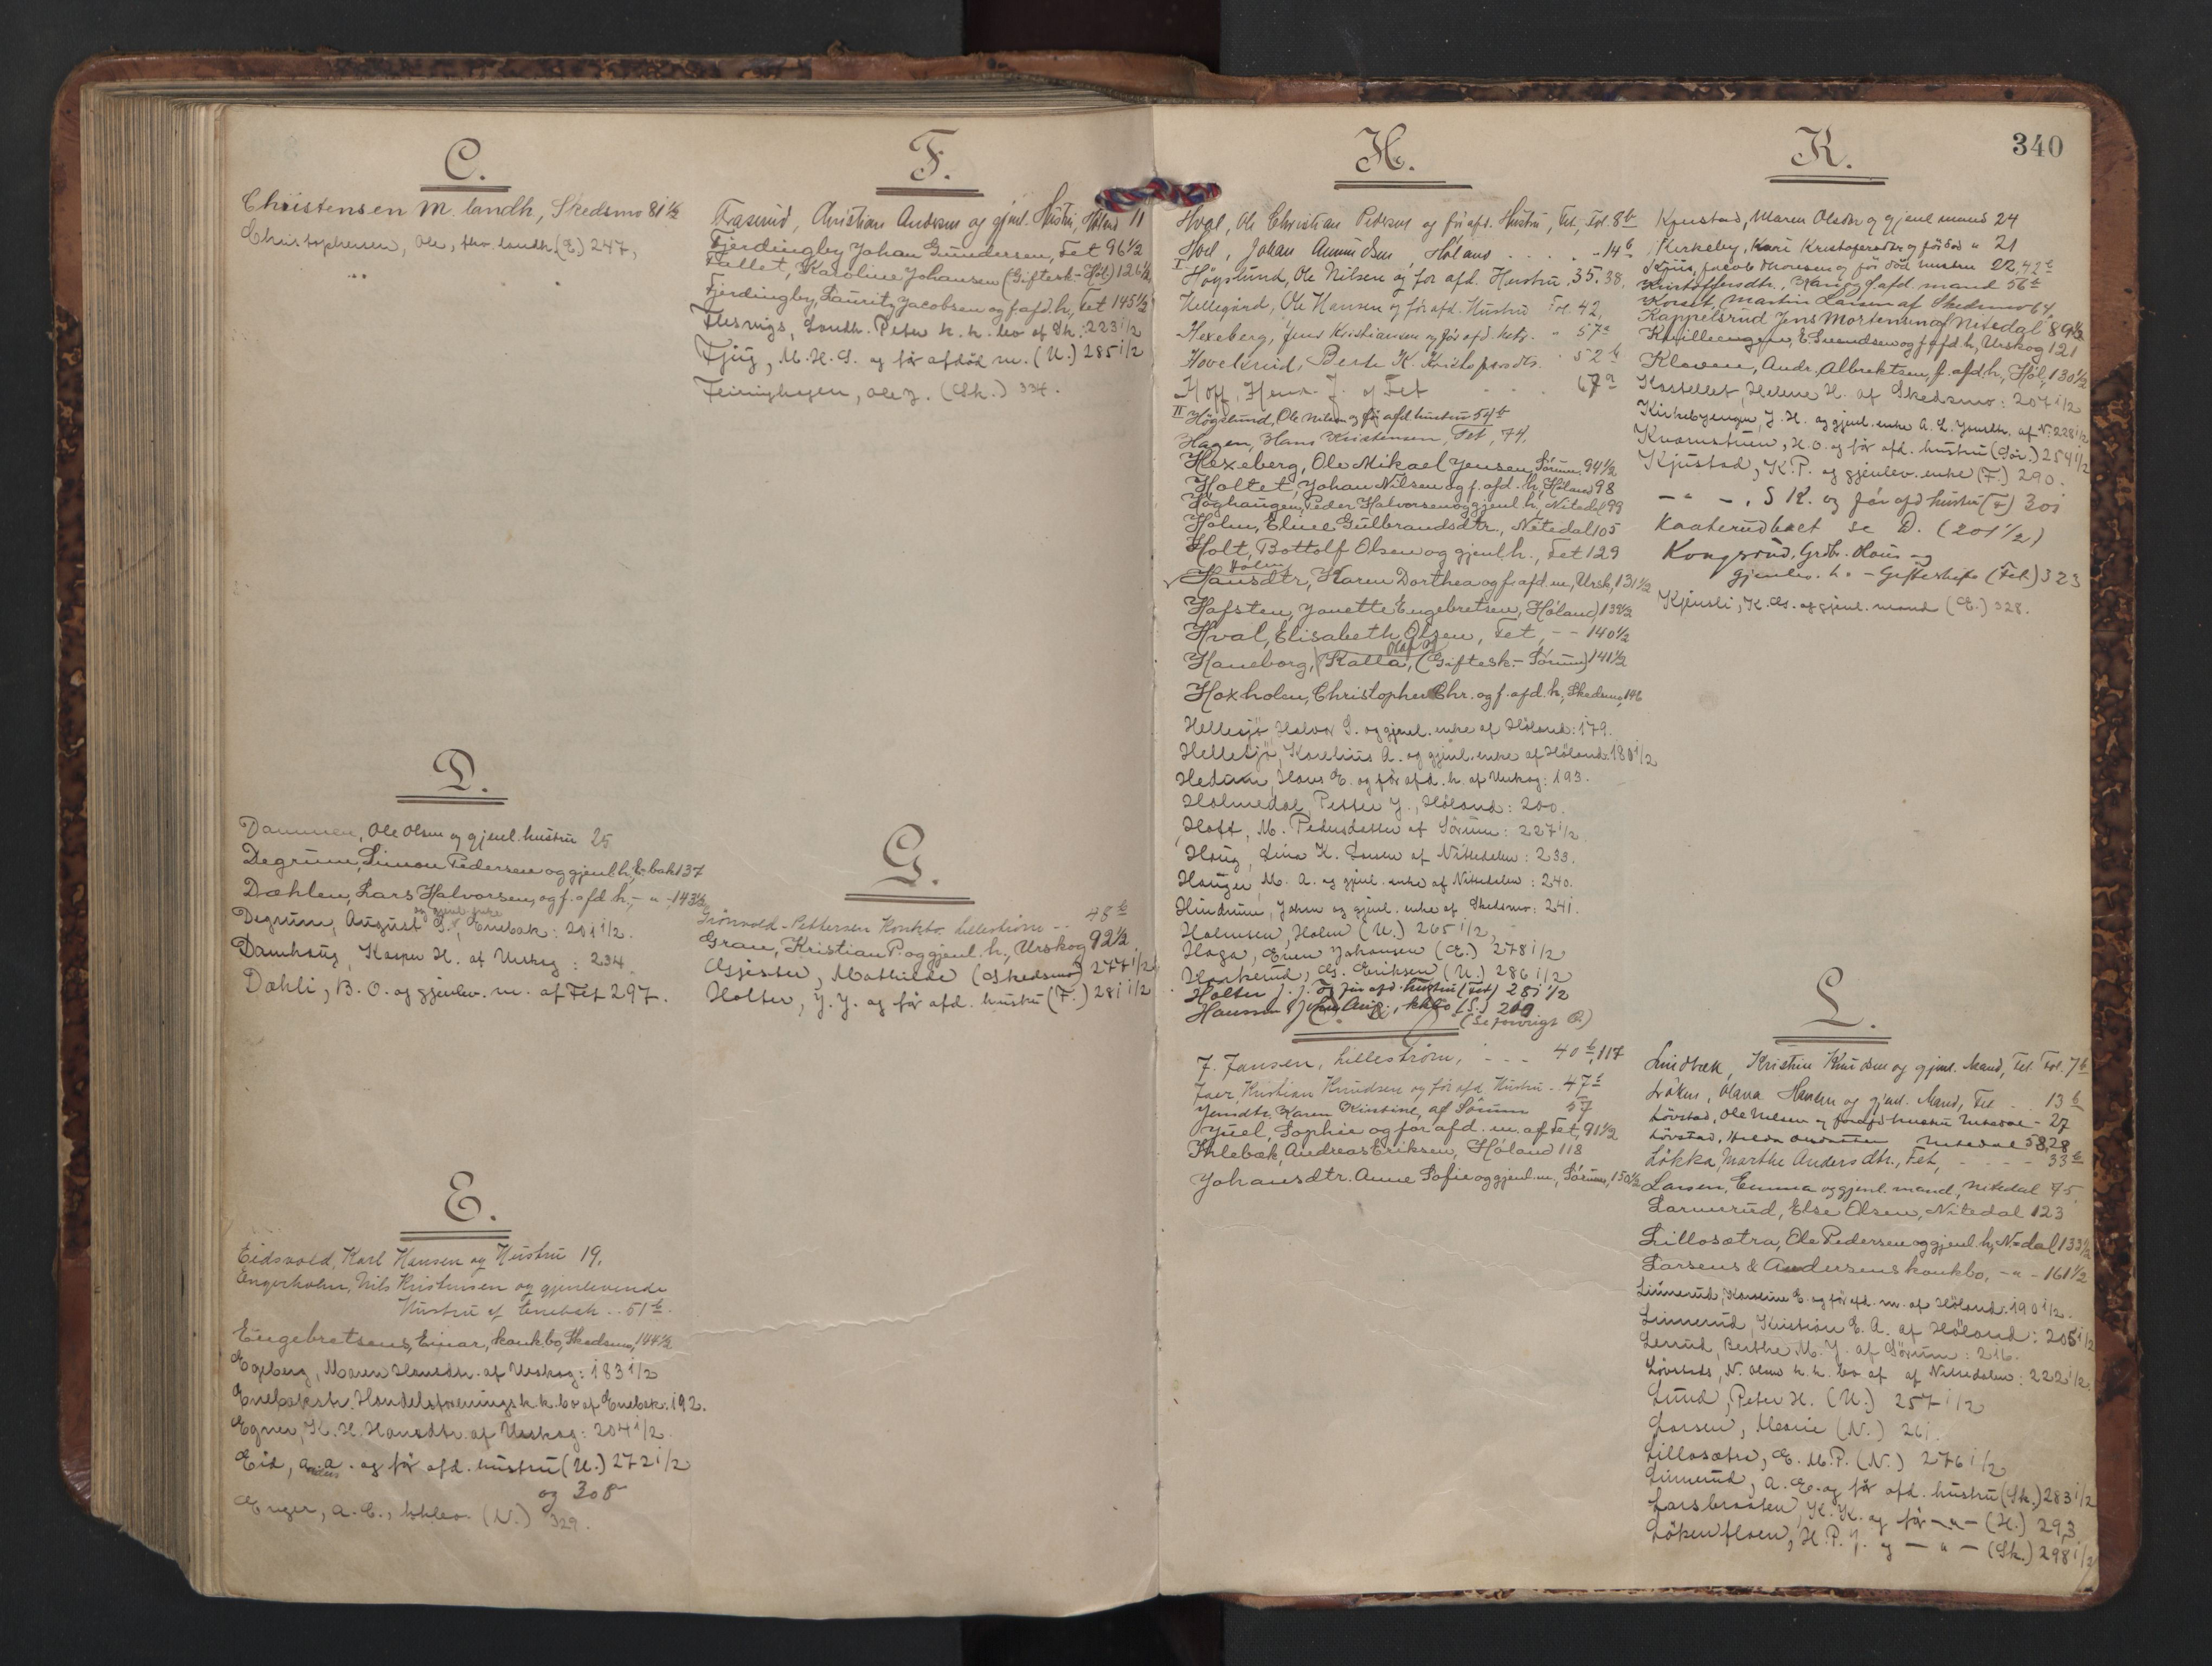 C.
Christensen M. landh, Skedsmo 81 1/2
Christophersen, Ole, landh. (E) 247,
D.
Dammen, Ole Olsen og gjenl. hustru 25
Degrum, Simon Pedersen og gjenl. h., E-bak 137
Dæhlen, Lars Halvorsen, og f. afd. h, - " - 143 1/2
og gjenl. enke
Degrum, August S., Enebak: 201 1/2.
Damhaug, Kasper H. af Urskog: 234
Dæhli, B. O. og gjenlev. m. af Fet 297.
E.
Eidsvold, Karl Hansen og Hustru 19,
Engerholm, Nils Kristensen og gjenlevende
Hustru af Enebak .. 51 b.
Engebretsens, Einar, konkbo, Skedsmo, 144 1/2
Egeberg, Maren Hansdtr. af Urskog: 183 1/2
Enebakstr. Handelsforenings k.k. bo af Enebak: 192.
Egner, K. H. Hansdtr. af Urskog: 204 1/2
Eid, Anders A. og før afd. hustru (U.) 272 1/2
og 308
Enger, A. E., (N.) 329.
F.
Fraserud, Christian Andersen og gjenl. Hustru, Høland 11
Fjerdingby Johan Gundersen, Fet 96 1/2
Fallet, Karoline Johansen (Giftesk.- Høl) 126 1/2
Fjerdingby, Lauritz Jacobsen og f. afd. h, Fet 145 1/2
Flesvigs, Landh. Peter k. k. bo af Sk.: 223 1/2
Fjug, M. H. S. og før afdød m. (U.) 285 1/2
Feiringhagen, Ole J. (Sk.) 334.
G.
Grönvold-Pettersen Konkbo. Lillestrøm -- 48 b
Gran, Kristian P. og gjenl. h., Urskog 92 1/2
Gjester, Mathilde (Skedsmo) 277 1/2
Holter, J. J. og før afd. hustru (F.) 281 1/2
H.
Hval, Ole Christian Pedersen og før afd. Hustru, Fet, Fol. 8 b
Hvel, Johan Amundsen, Høland . . . . 14 b
I Høgslund, Ole Nilsen og for afd. Hustru, 35. 38,
Hellegård, Ole Hansen og før afd. Hustru Fol. 42,
Hexeberg, Jens Kristiansen og før afd. hustr. " 57 a
Hovelsrud, Berte K. Kristofersdtr. " 52 b
Hoff, Henr. J. af Fet 67 a
II Högslund, Ole Nilsen og før afd hustru 54 b
Hagen, Hans Kristensen, Fet, 74.
Hexeberg, Ole Mikael Jensen, Sørum, 94 1/2
Holtet, Johan Nilsen og f. afd. h, Høland 98
Høghaugen, Peder Halvorsen og gjenl. h, Nitedal 99
Holm, Eline Gulbrandsdtr., Nitedal 105
Holt, Bottolf Olsen og gjenl. h., Fet 129
Holm
✓ Hansdtr, Karen Dorthea og f. afd. m, Ursk, 131 1/2
Hafsten, Janette Engebretsen, Høland 139 1/2
Hval, Elisabeth Olsen, Fet, - - 140 1/2
Olaf og
Haneborg, Kalla, (Giftesk.- Sørum) 141 1/2
Hoxholm, Christopher Chr. og f. afd. h, Skedsmo, 146
Hellesjø Halvor S. og gjenl. enke af Høland: 179.
Hellesjø, Karelius A. og gjenl. enke af Høland: 180 1/2
Hedum, Hans E. og før afd. h. af Urskog: 193.
Holmedal Petter J., Høland: 200.
Hoff, M. Pedersdatter af Sørum: 227 1/2
Haug, Lina K. Larsen af Nittedalen: 233.
Haugen, M. A. og gjenl. enke af Nittedalen: 240.
Hindrum, Johan og gjenl. enke af Skedsmo: 241.
Holmsen, Holm (U.) 265 1/2
Haga, Even Johansen (E.) 278 1/2
Harkerud, G. Eriksen (U.) 286 1/2
Holter J. J. og før afd. hustru (Fet) 281 1/2
Hansen Johan Aug., kkbo (S.) 209
(Se forrigt)
J. Jansen, Lillestrøm, - - - 40 b, 117
Joer, Kristian Knudsen og før afd. Hustru .. 47 b
Jensdtr. Karen Kirstine, af Sørum 57
Juel, Sophie og før afd. m. af Fet, 91 1/2
Ihlebæk, Andreas Eriksen, Høland 118
Johansdtr. Anne Sofie og gjenl. m, Sørum, 150 1/2
340
K.
Kjustad, Maren Olsdtr og gjenl mand 24
Kirkeby, Kari Kristofersdtr og før død " 21
Kjus, Jacob Thoresen og før död hustru 22, 42 b
Kristoffersdtr., Kari og f afd. mand 56 b
Korset, Martin Larsen af Skedsmo 64,
Kappelsrud Jens Mortensen af Nitedal 89 1/2
Kvillengen, E. Svendsen og f. afd. h, Urskog 121
Kleven, Andr. Albrektsen, f. afd. h., Høl, 130 1/2
Kastellet, Helene H. af Skedsmo: 207 1/2
Kirkebyengen, J. H. og gjenl. enke A. L. Jonsdtr. af N: 228 1/2
Kvernstuen, H. O. og før afd. hustru (Sør.) 254 1/2
Kjustad, K. P. og gjenlev. enke (F.) 290.
- " -, S K. og før afd hustru (F) 301
Kaaterudbæt se D. (201 1/2)
Kongsrud, Grdbr. Hans og
gjenlev. h. - Gifteskifte (Fet) 323
Kjensli, K. Gs. og gjenl. mand (E.) 328.
L.
Lindbæk, Kristine Knudsen og gjenl. Mand, Fet. Fol. 7 b
Løken, Olava Hansen og gjenl. Mand, Fet .. 13 b
Løvstad, Ole Nilsen og før afd hustru Nitedal - 27
Løvstad, Hilda Nitedal 58, 28
Løkka, Marthe Andersdtr., Fet, - - - - 33 b
Larsen, Emma og gjenl. mand, Nitedal 75,
Larmerud, Else Olsen, Nitedal 123
Lillosætra, Ole Pedersen og gjenl. h, N-dal 133 1/2
Larsens & Andersens konkbo, - " - 161 1/2
Linnerud, Karoline E. og før afd. m. af Høland: 190 1/2.
Linnerud, Kristian E. A. af Høland: 205 1/2
Lerud, Berthe M. J. af Sørum: 216.
Løvstads, N. Olsen k. k. bo af af Nittedalen: 222 1/2
Lund, Peter H. (U.) 257 1/2
Larsen, Marie (N.) 261
Lillosætre, E. M. P. (N.) 276 1/2
Linnerud, A. E. og før afd. hustru (Sk.) 283 1/2
Larsbraaten, K. K. og før - " - (H.) 293
Løkenfloen, H. P. J. og - " - (Sk.) 298 1/2